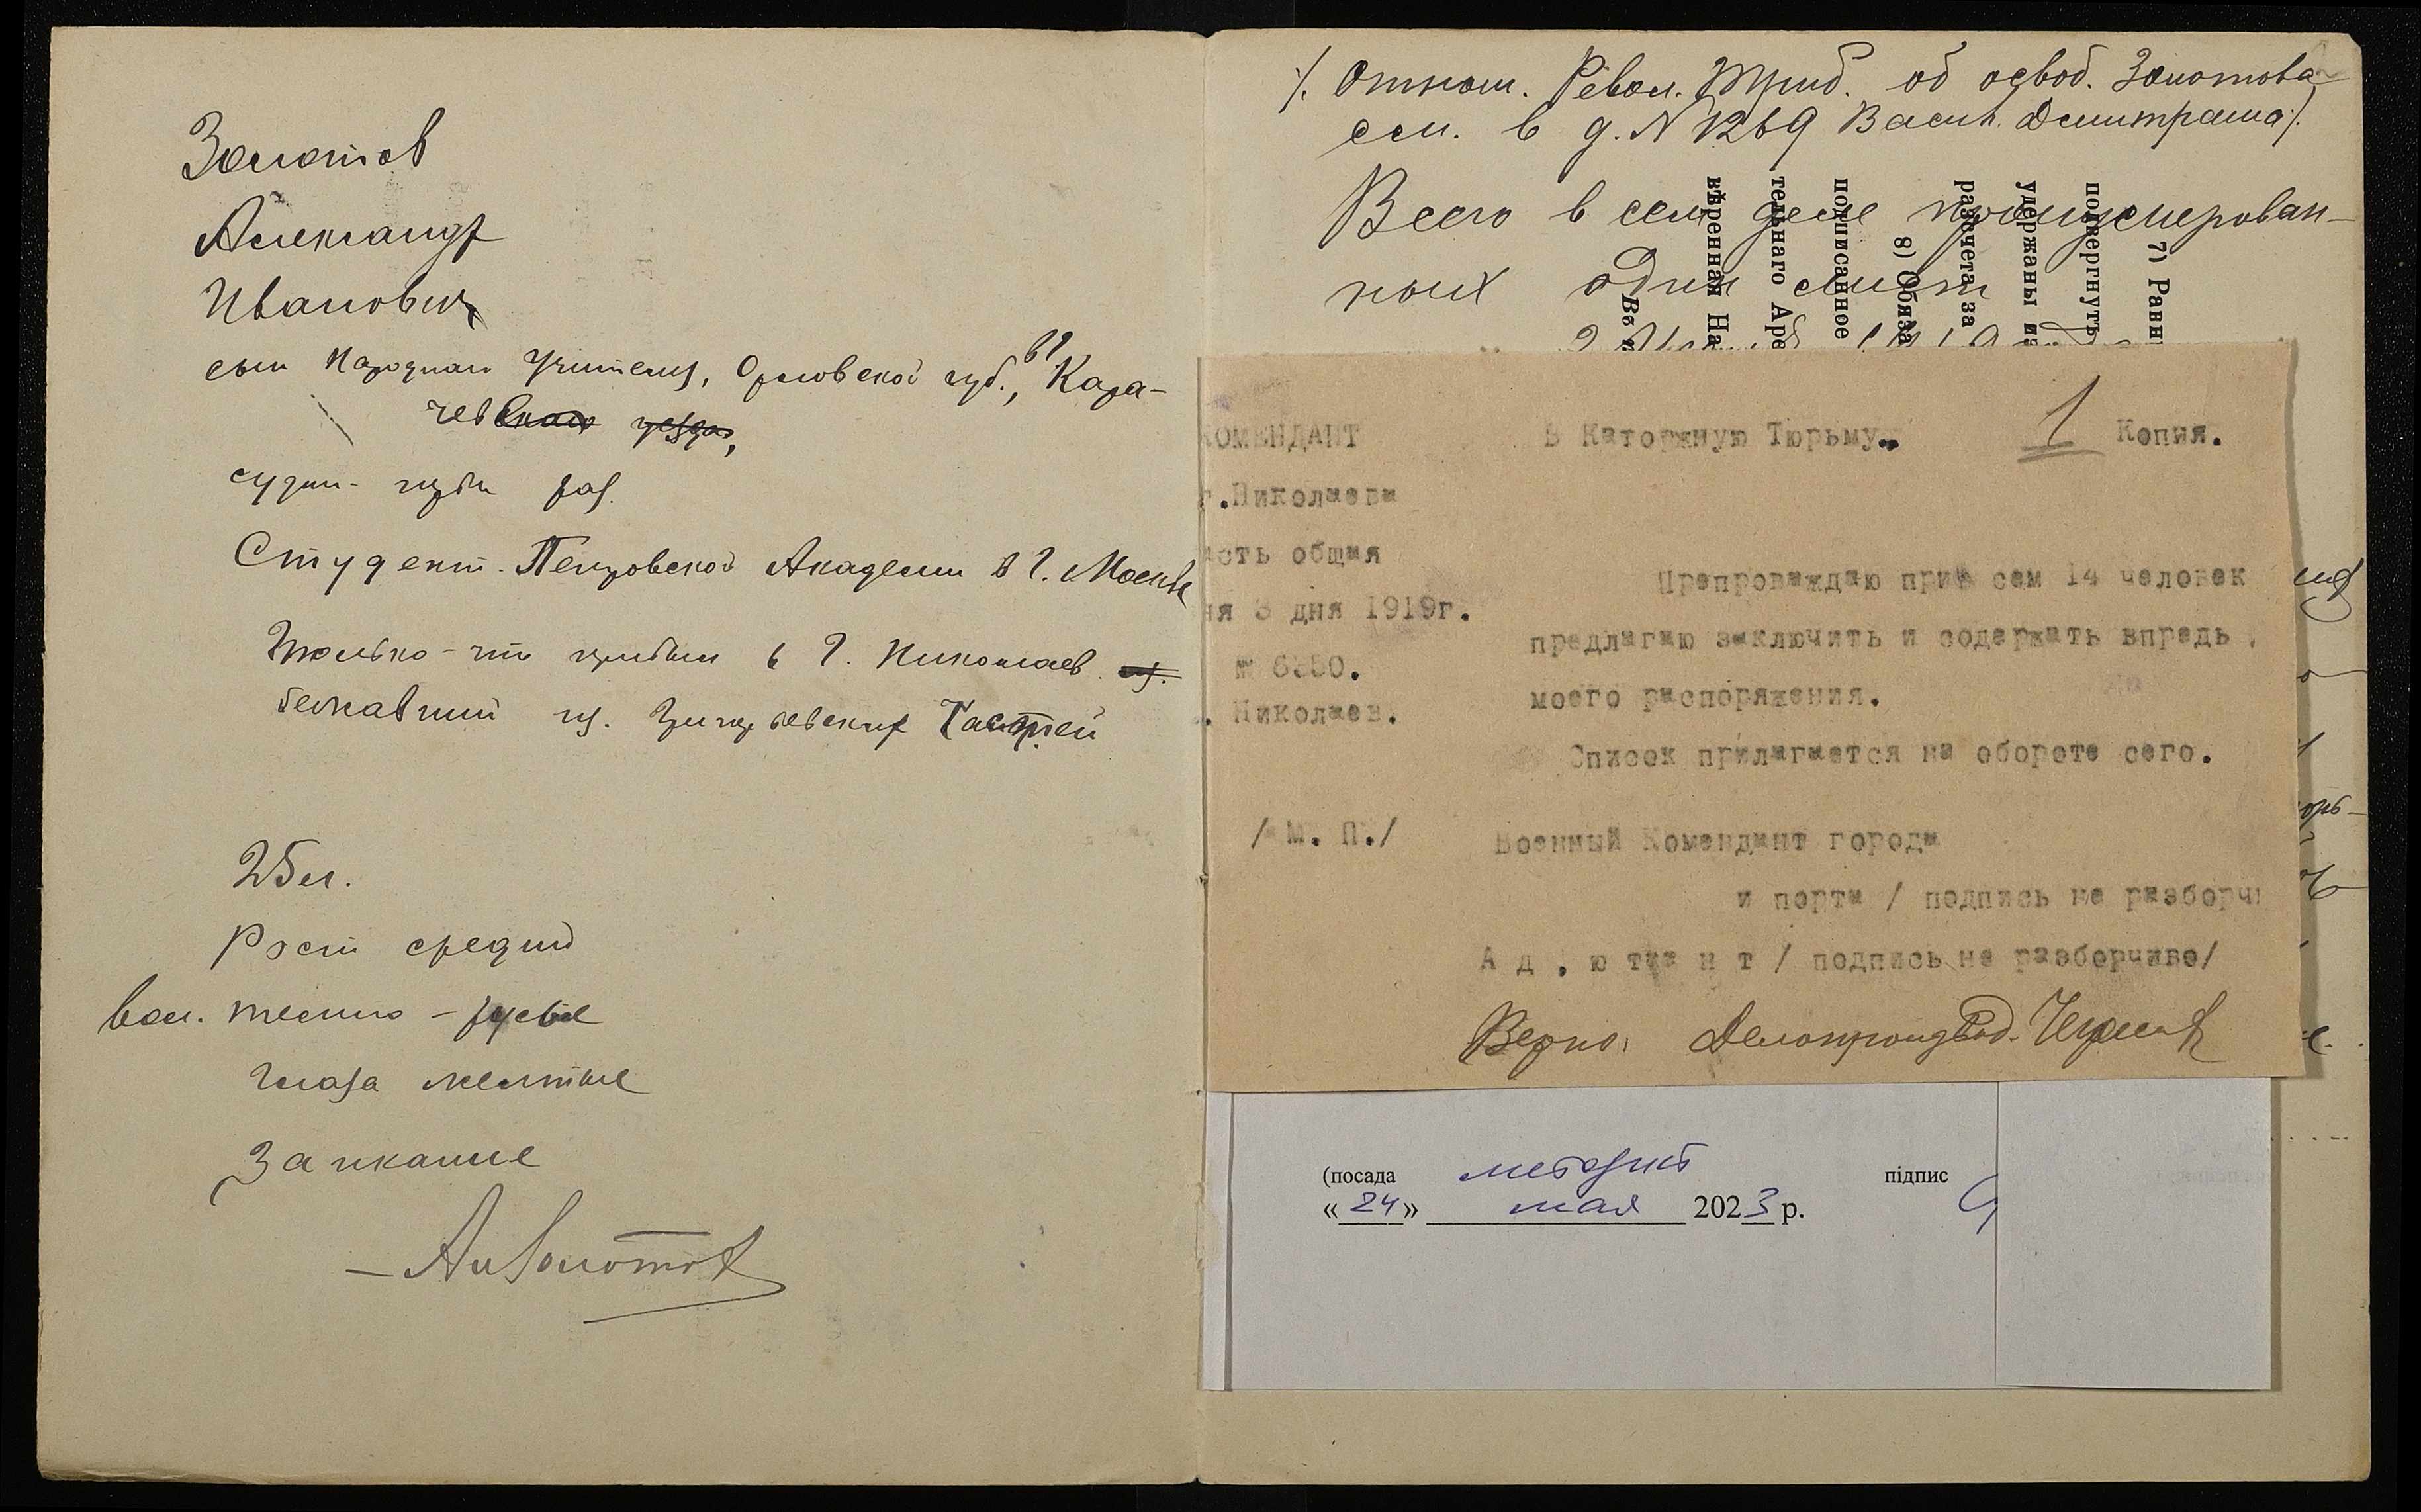 Золотов
Александр
Иванович
сын народнаго учителя, Орловской губ., в г. Кара-
чев
судим - первый раз.
Студент Петровской Академии в г. Москве
Только-что прибыл в г. Николаев
бежавший из Григорьевских частей
25 л.
Рост средний
вол. темно-русые
глаза желтые
Заикание
АлЗолотов
/. Отнош. Револ. Триб. об освоб. Золотова
см. в д. N 1269 Васил. Димитраша/.
Всего в сем деле пронумерован-
ных один лист
7) Равн
подвергнуть
удержаны из
разсчета за
8) Обяза
подписанное
тельнаго Аре
вѣренная На
Въ
КОМЕНДАНТ
г.Николаева
асть общая
ня 3 дня 1919г.
№ 6350.
. Николаев.
/ М. П./
В Каторжную Тюрьму.
1 Копия.
Препроваждаю при сем 14 человек
предлагаю заключить и содержать впредь
моего распоряжения.
Список прилагается на обороте сего.
Военный Комендант города
и порта / подпись не разборчи
А д . ю т а н т / подпись не разборчиво/
Верно: Делопроизвод.
(посада методист підпис
« 24 » мая 2023 р.